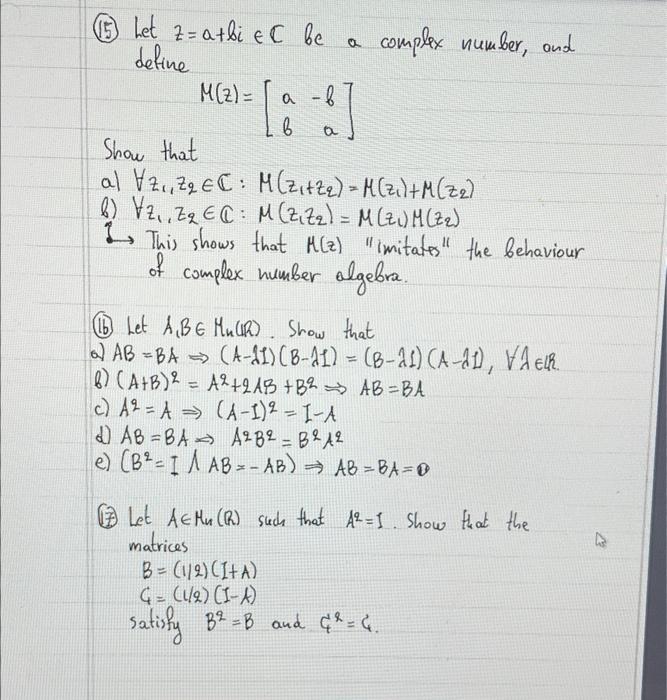 (15) Let z = a+bi ∈ ℂ be a complex number, and
define
M(z) = [ a -b
b a ]
Show that
a) ∀z₁,z₂∈ℂ : M(z₁+z₂) = M(z₁)+M(z₂)
b) ∀z₁,z₂∈ℂ : M(z₁z₂) = M(z₁)M(z₂)
↳ This shows that M(z) "imitates" the behaviour
of complex number algebra.
(16) Let A,B∈Mn(ℝ). Show that
a) AB = BA ⇒ (A-λI)(B-λI) = (B-λI)(A-λI), ∀λ∈ℝ.
b) (A+B)² = A²+2AB+B² ⇒ AB=BA
c) A² = A ⇒ (A-I)² = I-A
d) AB = BA ⇒ A²B² = B²A²
e) (B² = I ∧ AB = -AB) ⇒ AB = BA = 0
(17) Let A∈Mn(ℝ) such that A²=I. Show that the
matrices
B = (1/2)(I+A)
C = (1/2)(I-A)
satisfy B² = B and C² = C.